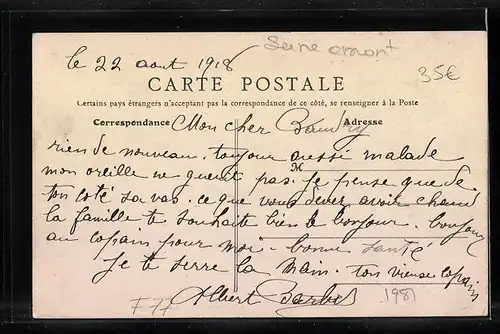 le 22 aout 1918
Seine amont
35€
CARTE POSTALE
Certains pays étrangers n'acceptant pas la correspondance de ce côté, se renseigner à la Poste
Correspondance
Adresse
Mon cher Baudry
rien de nouveau. toujour aussi malade
M
mon oreille ne guerit pas. Je pense que de
ton coté sa vas. ce que vous dever avoir chaud
la famille te souhaite bien le bonjour. bonjour
au copain pour moi. bonne santé
Je te serre la main. ton vieux copain
Albert
F77
1981